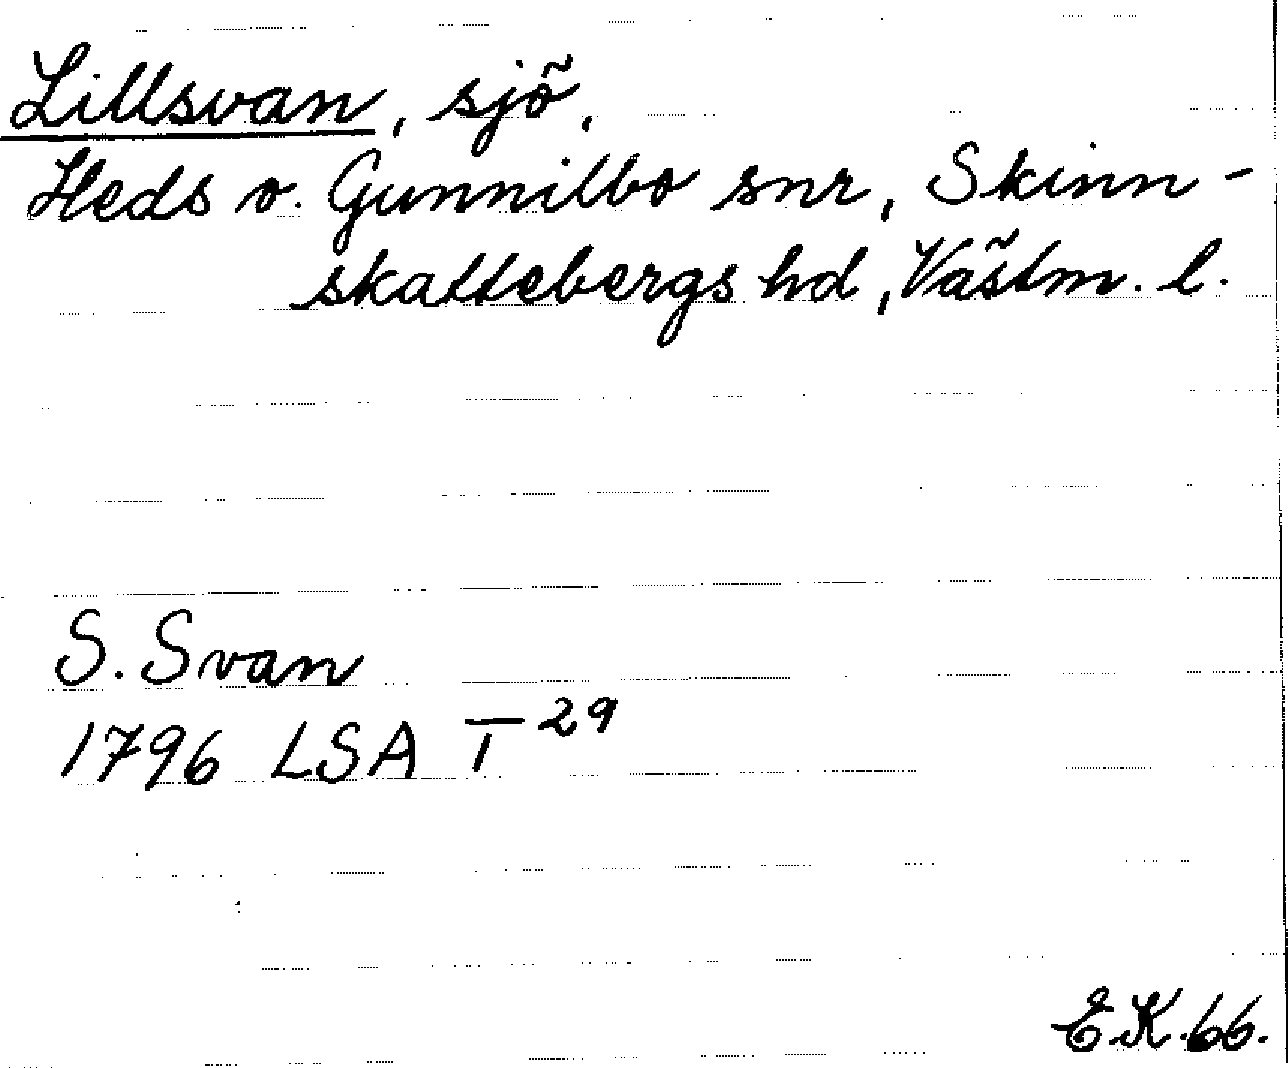 Lillsvan, sjö,
Heds o. Gunnilbo snr, Skinn-
skattebergs hd, Västm. l.
S. Svan
1796 LSA T 29
E.K. 66.